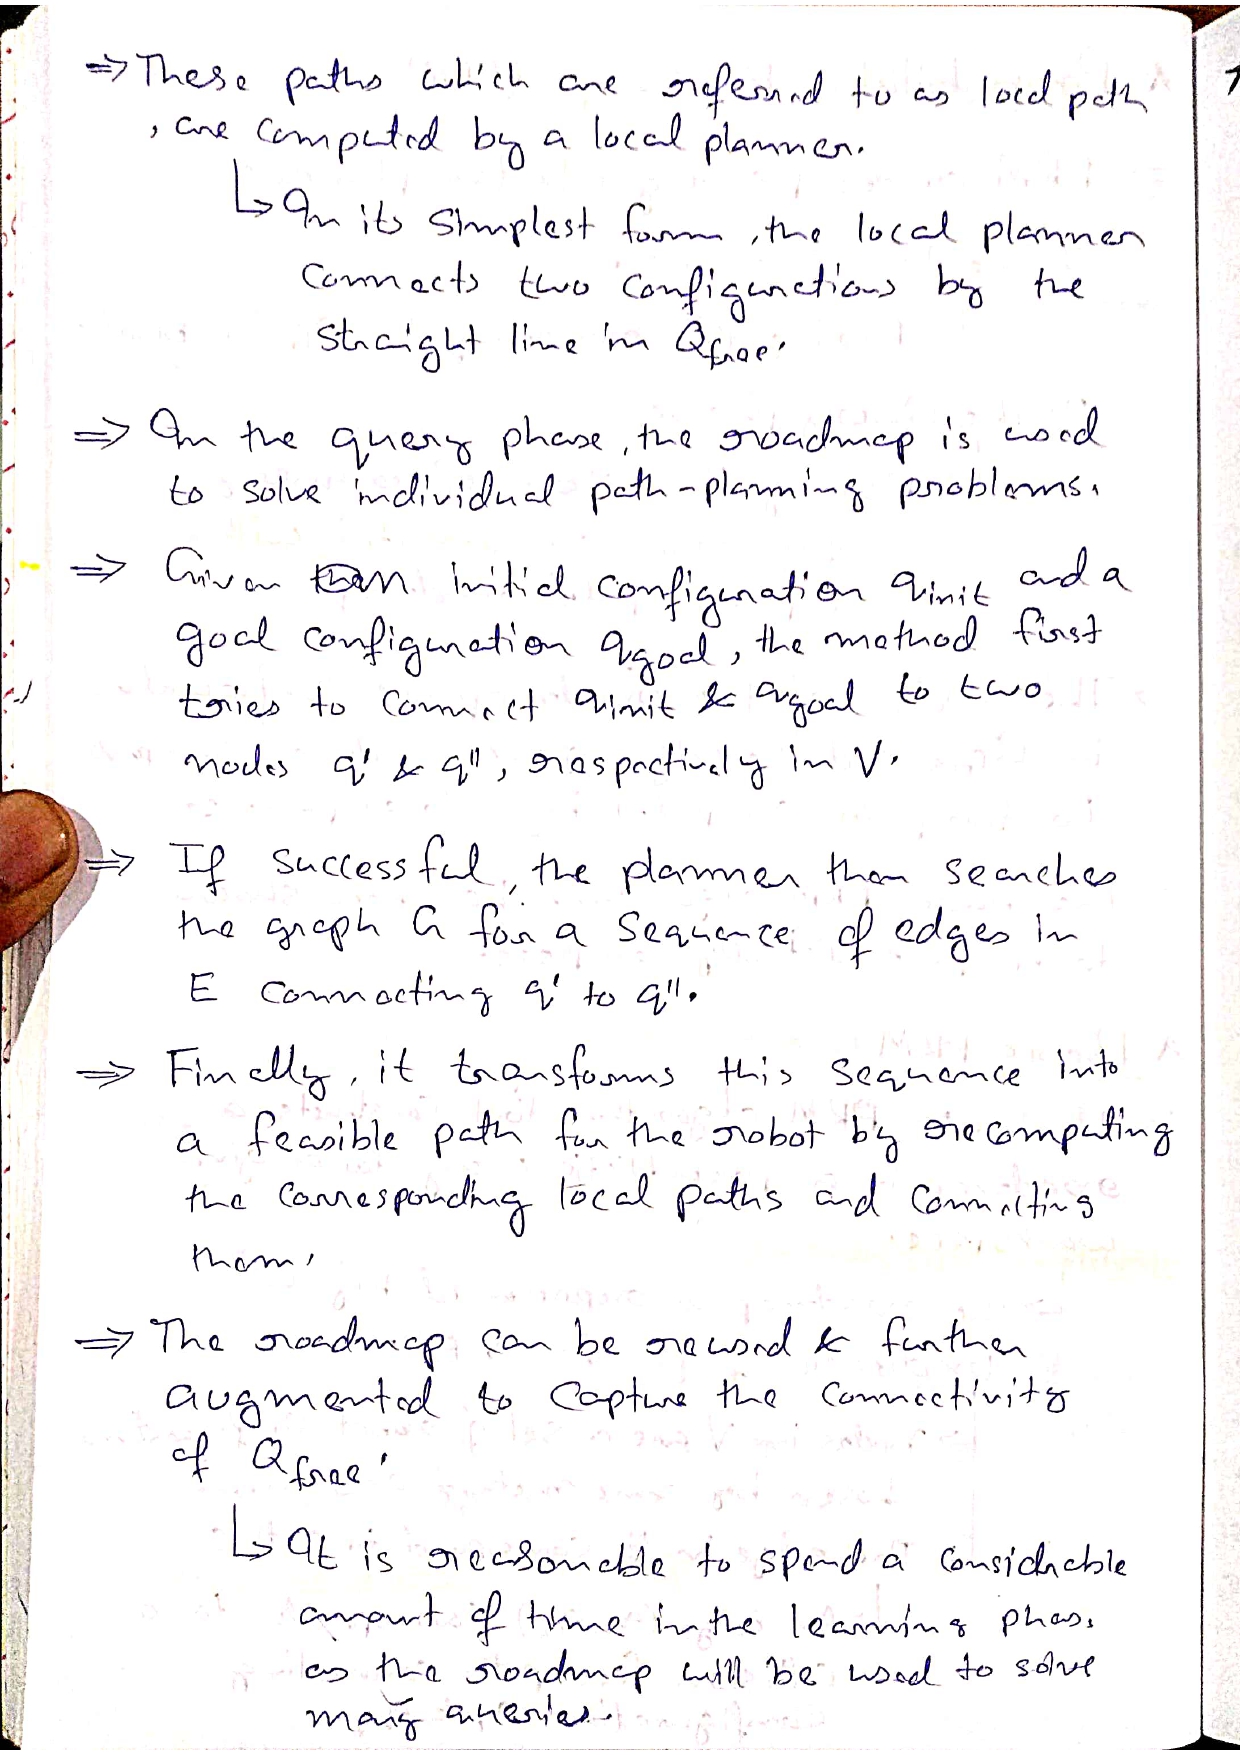 ⇒ These paths which are referred to as local path
, are computed by a local planner.
↳ In its simplest form, the local planner
connects two configurations by the
straight line in Qfree.
⇒ In the query phase, the roadmap is used
to solve individual path-planning problems.
⇒ Given initial configuration qinit and a
goal configuration qgoal, the method first
tries to connect qinit & qgoal to two
nodes q' & q'', respectively in V.
⇒ If successful, the planner then searches
the graph G for a sequence of edges in
E connecting q' to q''.
⇒ Finally, it transforms this sequence into
a feasible path for the robot by recomputing
the corresponding local paths and connecting
them.
⇒ The roadmap can be reused & further
augmented to capture the connectivity
of Qfree.
↳ It is reasonable to spend a considerable
amount of time in the learning phase
as the roadmap will be used to solve
many queries.